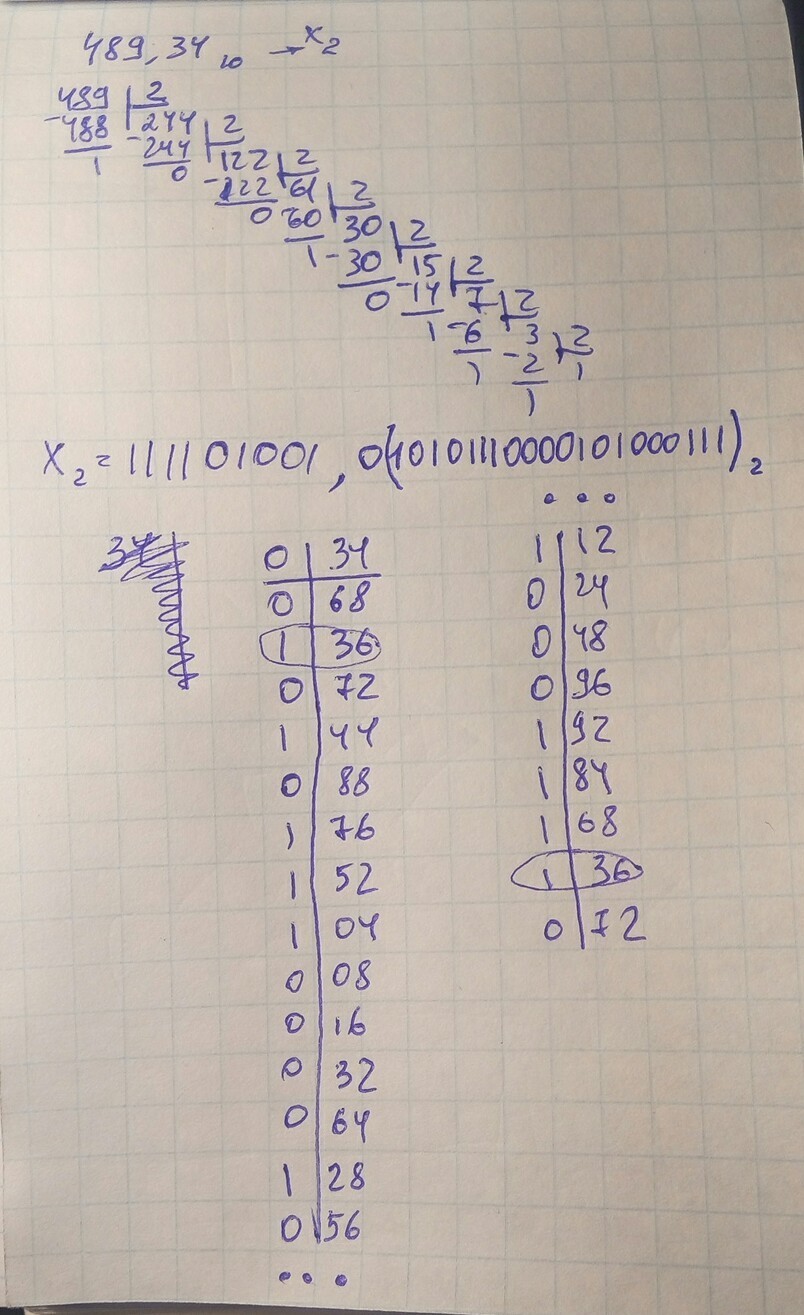 489,34₁₀ → x₂
489 | 2
-488 | 244 | 2
1 -244 | 122 | 2
0 -122 | 61 | 2
0 60 | 30 | 2
1 -30 | 15 | 2
0 -14 | 7 | 2
1 -6 | 3 | 2
1 -2 | 1
1
X₂ = 111101001,0(10101110000101000111)₂
...
0 | 34
0 | 68
1 | 36
0 | 72
1 | 44
0 | 88
1 | 76
1 | 52
1 | 04
0 | 08
0 | 16
0 | 32
0 | 64
1 | 28
0 | 56
...
1 | 12
0 | 24
0 | 48
0 | 96
1 | 92
1 | 84
1 | 68
1 | 36
0 | 72